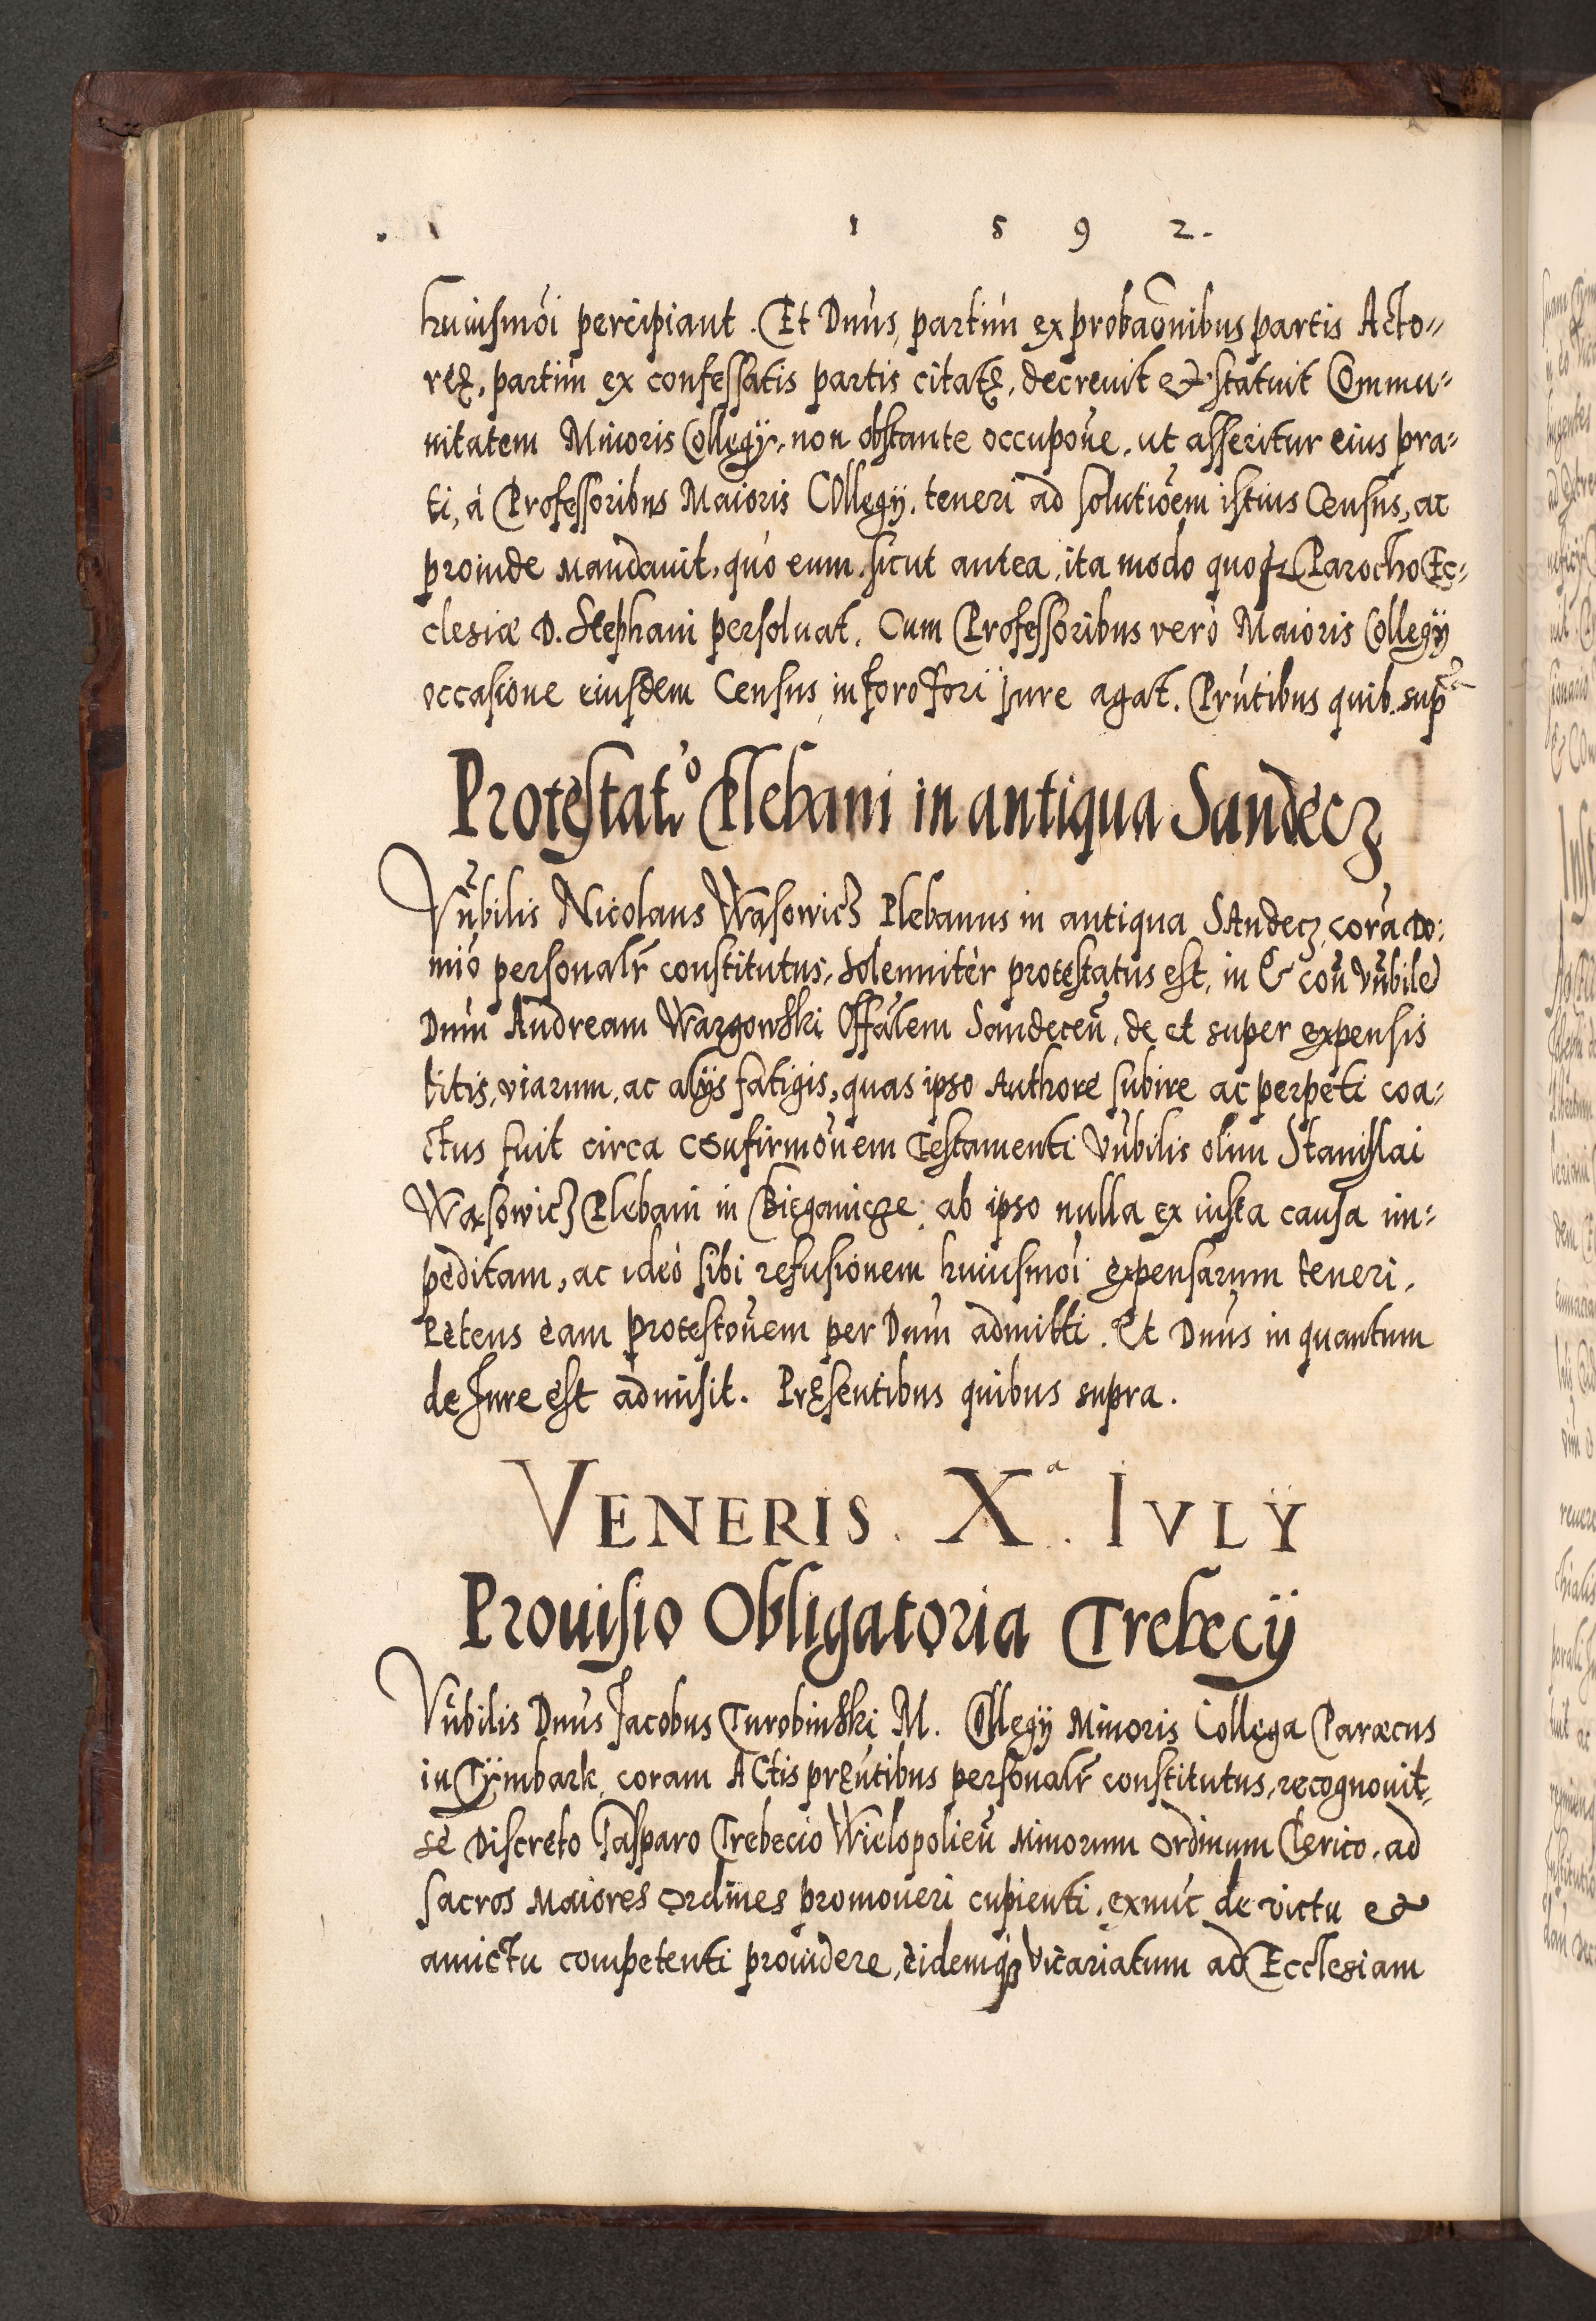 1 5 9 2.
huiusmoi percipiant. Et Dnus, partim ex probaonibus partis Acto=
ręę, partim ex confessatis partis citatę, decreuit et statuit Commu=
nitatem Minoris Collegÿ, non obstante occupone, ut asseritur eius pra=
ti, à Professoribus Maioris Collegÿ, teneri ad solutioem istius Census, ac
proinde mandauit, quo eum, sicut antea, ita modo quoq Parocho Ec=
clesiæ D. Stephani persoluat. Cum Professoribus verò Maioris Collegÿ
occasione eiusdem Census, in foro fori iure agat. Prntibus quib. supra
Protestatio Plebani in antiqua Sandecz
Vnbilis Nicolaus Wąsowicz Plebanus in antiqua Sandecz, corã Do=
mio personalr constitutus, solenniter protestatus est, in et con Vnbilem
Dnm Andream Wargowski Offalem Sandeceñ, de et super expensis
litis, viarum, ac alÿs fatigis, quas ipso Authore subire ac perpeti coa=
ctus fuit circa confirmonem Testamenti Vnbilis olim Stanislai
Wąsowicz Plebani in Bieganicze, ab ipso nulla ex iusta causa im=
peditam, ac ideò sibi refusionem huiusmoi expensarum teneri,
Petens eam protestonem per Dnm admitti. Et Dnus in quantum
de Jure est admisit. Pręsentibus quibus supra.
VENERIS. Xa. IVLŸ
Prouisio Obligatoria Trebecÿ
Vnbilis Dnus Jacobus Turobinski M. Collegÿ Minoris Collega Paræcus
in Tÿmbark, coram Actis pręntibus personalr constitutus, recognouit,
se Discreto Gasparo Trebecio Wielopolień Minorum Ordinum Clerico, ad
sacros Maiores Ordines promoueri cupienti, exnuc de victu et
amictu competenti prouidere, eidemq Vicariatum ad Ecclesiam